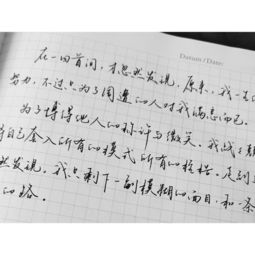 Datum / Date:
在一回首间，才忽然发现，原来，我一生
努力，不过只为了周遭的人对我满意而已。
为了博得他人的称许与微笑，我战战兢
将自己套入所有的模式所有的桎梏。走到途
然发现，我只剩下一副模糊的面目，和一条
的路。